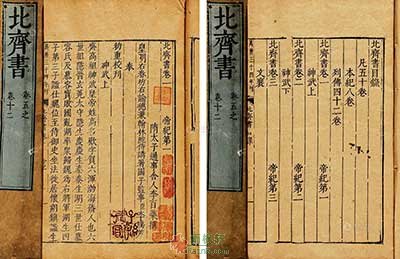 北齊書
卷五之
卷十二
北齊書卷一 帝紀第一
隋太子通事舍人李百藥撰
奉
敕重校刊
神武上
齊高祖神武皇帝姓高名歡字賀六渾渤海蓨人也六
世祖隱晉玄菟太守隱生慶慶生泰泰生湖三世仕慕
容氏及慕容寶敗國亂湖率衆歸魏為右將軍湖生四
子第三子謐仕魏位至侍御史坐法徙居懷朔鎮謐生
北齊書
卷五之
卷十二
北齊書目錄
凡五十卷
本紀八卷
列傳四十二卷
北齊書卷一 帝紀第一
神武上
北齊書卷二 帝紀第二
神武下
北齊書卷三 帝紀第三
文襄